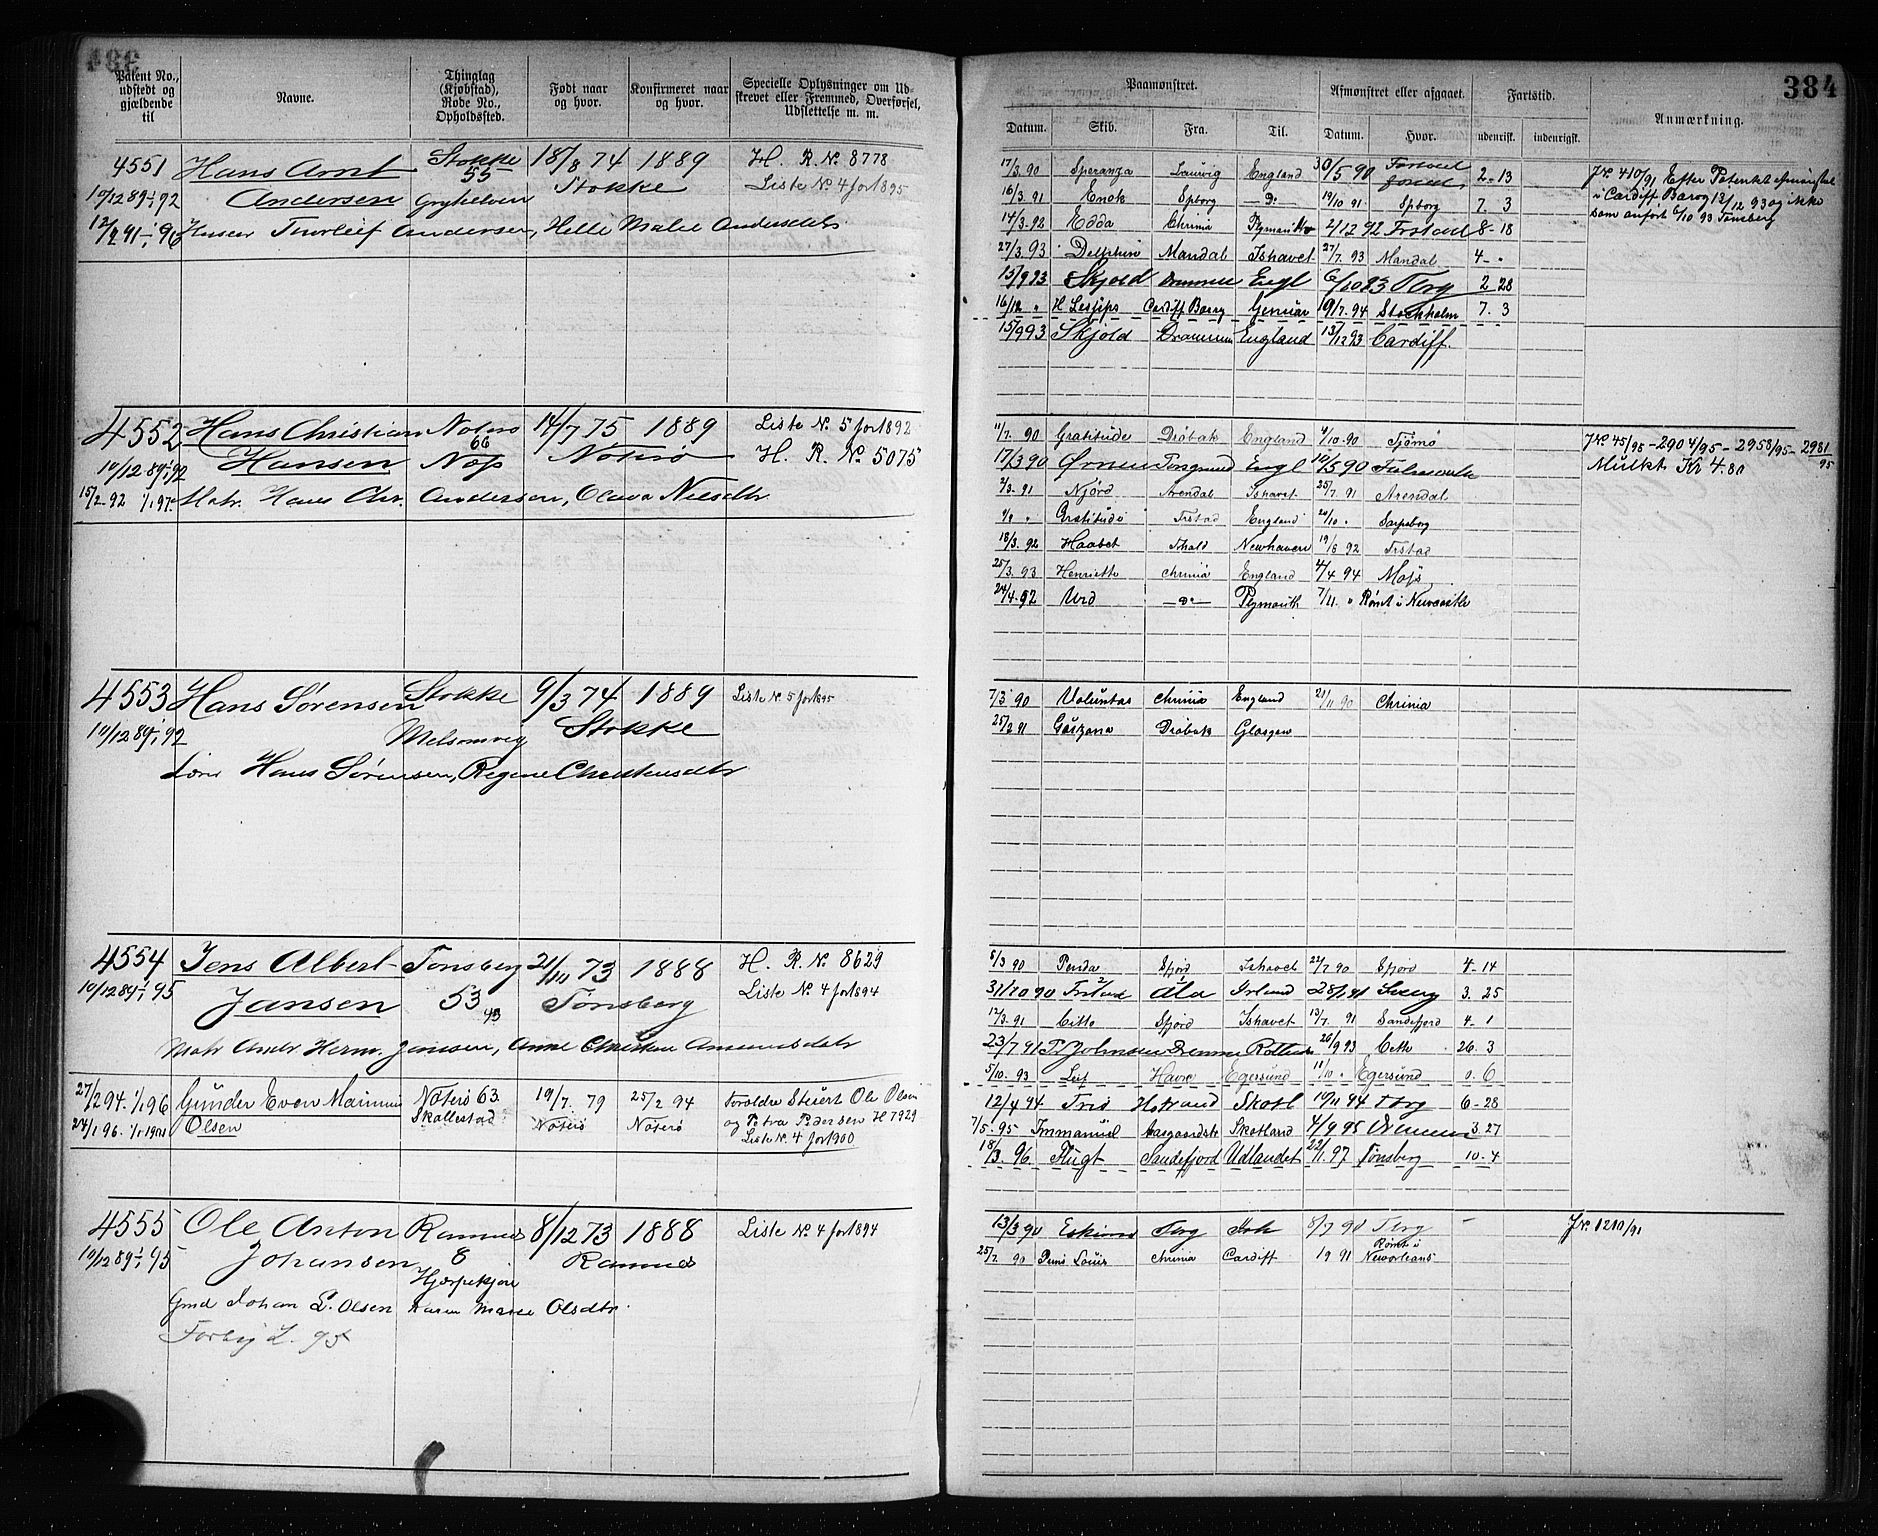 384
Patent No., udstedt og gjældende til
Navne.
Thinglag (Kjøbstad), Rode No., Opholdssted.
Født naar og hvor.
Konfirmeret naar og hvor.
Specielle Oplysninger om Udskrevet eller Fremmed, Overførsel, Udslettelse m. m.
4551 Hans Arnt Stokke 18/8 74 1889 H. R. No 8778
55 Stokke Liste No 4 for 1895
10/12 89 1/1 92 Andersen
Andersen, Helle Malie Andersdtr
4552 Hans Christian Noterø 14/7 75 1889 Liste No 5 for 1892
66
10/12 89 1/1 92 Hansen Nøss Noterø H. R. No 5075
15/2 92 1/1 97 Matr. Hans Chr. Andersen, Olava Nielsdtr
4553 Hans Sørensen Stokke 9/3 74 1889 Liste No 5 for 1895
10/12 89 1/1 92 Melsomvig Stokke
Hans Sørensen, Regine Christensdtr
4554 Jens Albert Tønsberg 21/11 73 1888 H. R. No 8629
10/12 89 1/1 95 Jansen 53 Tønsberg Liste No 4 for 1894
43
Matr Andr Herm. Jensen, Anne
27/2 94 1/1 96 Gunder Even Marinius Noterø 63 19/7. 79 25/2 94 Forældre Stuert Ole Olsen
24/1 96. 1/1 1901 Olsen Skallestad Noterø Noterø og Petra Pedersen H 7929
Liste No 4 for 1900
4555 Ole Anton Ramnes 8/12 73 1888 Liste No 4 for 1894
10/12 89 1/1 95 Johansen 8 Ramnes
Gmd Johan L. Olsen Karen Marie Olsdtr.
Forbig L. 95
384
Paamønstret.
Afmønstret eller afgaaet.
Fartstid.
Anmærkning.
Datum. Skib. Fra. Til. Datum. Hvor. udenrisk. indenrigst.
17/3. 90 Speranza Laurvig England 30/5 90 2-13
16/3. 91 Enok Spborg -Do- 19/10 91 Spborg 7. 3
14/3. 92 Edda Chrinia Plymouth 2/12 92 Frstad 8-18
27/3. 93 Delphin Mandal Ishavet 27/7. 93 Mandal 4-"
15/9 93 Skjold Drammen Engl 6/10 93 Tbrg 2 28
16/12 " H Cardiff Barry Genua 9/7. 94 Stockholm 7. 3
15/9 93 Skjold Drammen England 13/12 93 Cardiff.
JNo 410/91 Efter Patentet
i Cardiff Barry 13/12 93 og ikke
som anført 6/10 93 Tønsberg
11/7. 90 Gratitude Drøbak England 4/10-90 Tjømø
17/3 90 Engl 10/5 90
2/3. 91 Njørd Arendal Ishavet 25/7. 91 Arendal
" Gratitude Frstad England 20/10 " Sarpsborg
18/3. 92 Haabet Fhald Newhaven 19/8 92 Frstad
25/3. 93 Henriette Chrinia England 4/4 94 Moss
24/4. 92 Urd -Do- Plymouth 7/11. " Rømt i Newcastle
JNo 45/95 - 2904/95 - 2958/95 - 2981/95
Mulkt Kr 4.80
7/3 90 Voluntas Chrinia England 21/11 90 Chrinia
25/2 91 Drøbak Glasgow
5/3 90 Penda Sfjord Ishavet 22/7 90 Sfjord 4-14
31/10 90 Irland 3. 25
12/3. 91 Citto Sfjord Ishavet 13/7. 91 Sandefjord 4-1
23/7 91 20/9 93 26. 3
5/10. 93 Leif Havre Egersund 11/10 " Egersund 0. 6
12/4 94 Holland Skotl 10/11 94 Tbrg 6-28
7/5-95 Immanuel Aasgaardst Skotland 4/9 95 3. 27
18/3. 96. Flugt Sandefjord Udlandet 22/1. 97 Tønsberg 10-4
13/3 90 Tbrg 5/7 90 Tbrg
25/7 90 Prins Louis Chrinia Cardiff 19 91 Rømt i Neworleans
JNo 1210/91